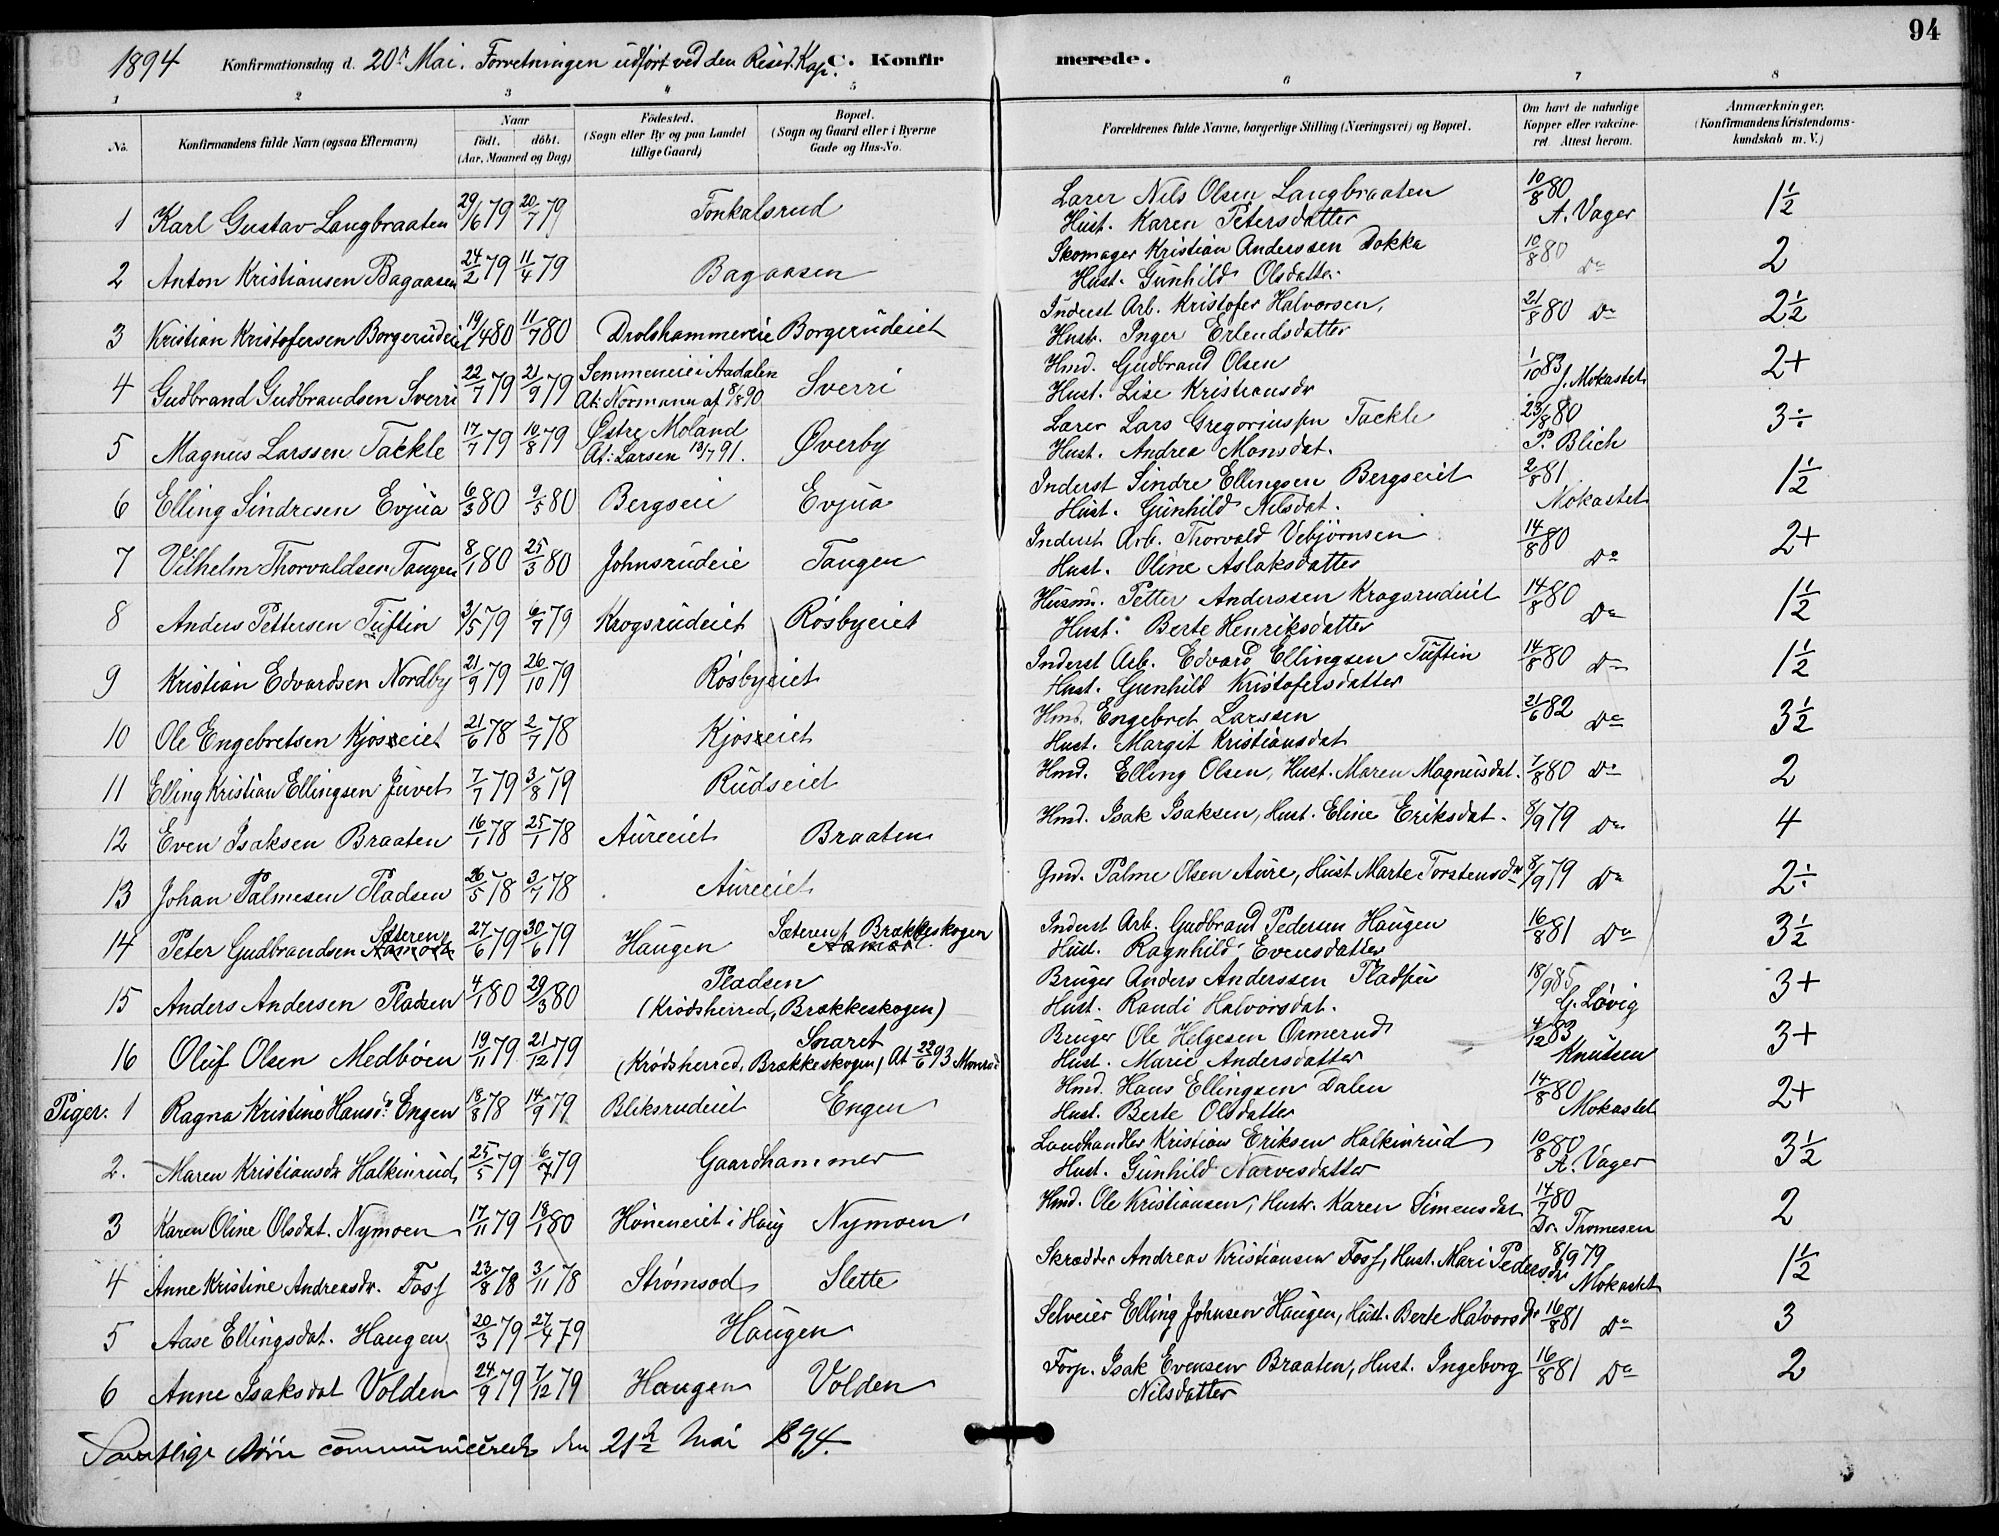 94
1894 Konfirmationsdag d. 20de Mai. Forretningen udført ved den Resid. Kap. C. Konfirmerede.
1 2 3 4 5 6 7 8
No. Konfirmandens fulde Navn (ogsaa Efternavn) Naar födt. döbt. (Aar, Maaned og Dag) Födested. (Sogn eller By og paa Landet tillige Gaard) Bopæl. (Sogn og Gaard eller i Byerne Gade og Hus-No. Forældrenes fulde Navne, borgerlige Stilling (Næringsvei) og Bopæl. Om havt de naturlige Kopper eller vakcineret. Attest herom. Anmærkninger. (Konfirmandens Kristendomskundskab m. V.)
1 Karl Gustav Langbraaten 29/6 79 20/7 79 Tonkalsrud Larer Nils Olsen Langbraaten 10/8 80 1½
Hust. Karen Petersdatter A. Vager
2 Anton Kristiansen Bagaasen 24/2 79 11/4 79 Bagaasen Skomager Kristian Anderssen Dokka 10/8 80 Do 2
Hust. Gunhild Olsdatter
3 Kristian Kristofersen Borgerudeiet 19/4 80 11/7 80 Drolshammereie Borgerudeiet Inderst Arb. Kristofer Halvorsen, 21/8 80 Do 2½
Hust. Inger Erlendsdatter
4 Gudbrand Gudbrandsen Sverri 22/7 79 21/9 79 Semmeneie i Aadalen Sverri Hmd. Gudbrand Olsen 1/10 83 2+
At: Normann af 8/8 90 Hust. Lise Kristiansdr J. Mokastet
5 Magnus Larssen Tackle 17/7 79 10/8 79 Østre Moland Øverby Larer Lars Gregoriussen Tackle 23/8 80 3÷
At: Larsen 13/7 91. Hust. Andrea Monsdat. P. Blich
6 Elling Sindresen Evjua 6/3 80 9/5 80 Bergseie Evjua Inderst Sindre Ellingsen Bergseiet 2/8 81 1½
Hust. Gunhild Nilsdat. Mokastet
7 Vilhelm Thorvaldsen Tangen 8/1 80 25/3 80 Johnsrudeie Tangen Inderst Arb. Thorvald Vebjørnsen 14/8 80 Do 2+
Hust. Oline Aslaksdatter
8 Anders Pettersen Tuftin 3/5 79 6/7 79 Krogsrudeiet Rösbyeiet Husm. Petter Anderssen Krogsrudeiet 14/8 80 Do 1½
Hust. Berte Henriksdatter
9 Kristian Edvardsen Nordby 21/9 79 26/10 79 Rösbyeiet Inderst Arb. Edvard Ellingsen Tuftin 14/8 80 Do 1½
Hust. Gunhild Kristofersdatter
10 Ole Engebretsen Kjoseiet 21/6 78 2/7 78 Kjoseiet Hmd. Engebret Larssen 21/6 82 Do 3½
Hust. Margit Kristiansdat
11 Elling Kristian Ellingsen Juvet 7/7 79 3/8 79 Rudseiet Hmd. Elling Olsen, Hust. Maren Magnusdat. 7/8 80 Do 2
12 Even Isaksen Braaten 16/1 78 25/1 78 Aureeiet Braaten Hmd. Isak Isaksen, Hust. Eline Eriksdat. 8/9 79 Do 4
13 Johan Palmesen Pladsen 26/5 78 3/7 78 Aureeiet Gmd. Palme Olsen Aure, Hust Marte Torstensdr 8/9 79 Do 2÷
14 Peter Gudbrandsen Sæteren 27/6 79 30/6 79 Haugen Sæteren, Brækkeskogen Inderst Arb. Gudbrand Pedersen Haugen 16/8 81 Do 3½
Hust. Ragnhild Evensdatter
15 Anders Andersen Pladsen 4/1 80 29/3 80 Pladsen Bruger Anders Anderssen Pladsen 18/9 85 3+
(Krödsherred, Brækkeskogen) Hust. Randi Halvorsdat. G. Løvig
16 Oluf Olsen Medbøen 19/11 79 21/12 79 Snaret Bruger Ole Helgesen Ormerud 4/12 83 3+
(Krödsherred, Brækkeskogen) At 22/6 93 Monrad Hust. Marie Andersdatter Knutsen
Piger. 1 Ragna Kristine Hansdr Engen 18/8 78 14/9 79 Bliksrudeiet Engen Hmd. Hans Ellingsen Dalen 14/8 80 2+
Hust. Berte Olsdatter Mokastet
2. Maren Kristiansdr Halkinrud 25/5 79 6/7 79 Gaardhammer Landhandler Kristian Eriksen Halkinrud 10/8 80 3½
Hust. Gunhild Narvesdatter A. Vager
3 Karen Oline Olsdat. Nymoen 17/11 79 18/1 80 Höneneiet i Haug Nymoen Hmd. Ole Kristiansen, Hustr. Karen Simensdat 14/7 80 2
Dr. Thomesen
4 Anne Kristine Andreasdr. Foss 23/8 78 3/11 78 Strømsod Slette Skrædder Andreas Kristiansen Foss, Hust. Mari Pedersdr 8/9 79 1½
Mokastet
5 Aase Ellingsdat. Haugen 20/3 79 27/4 79 Haugen Selveier Elling Johnsen Haugen, Hust. Berte Halvorsdr 16/8 81 Do 3
6 Anne Isaksdat Volden 24/9 79 7/12 79 Haugen Volden Forp. Isak Evensen Braaten, Hust. Ingeborg 16/8 81 Do 2
Nilsdatter
Samtlige Børn communicerede den 21de Mai 1894.